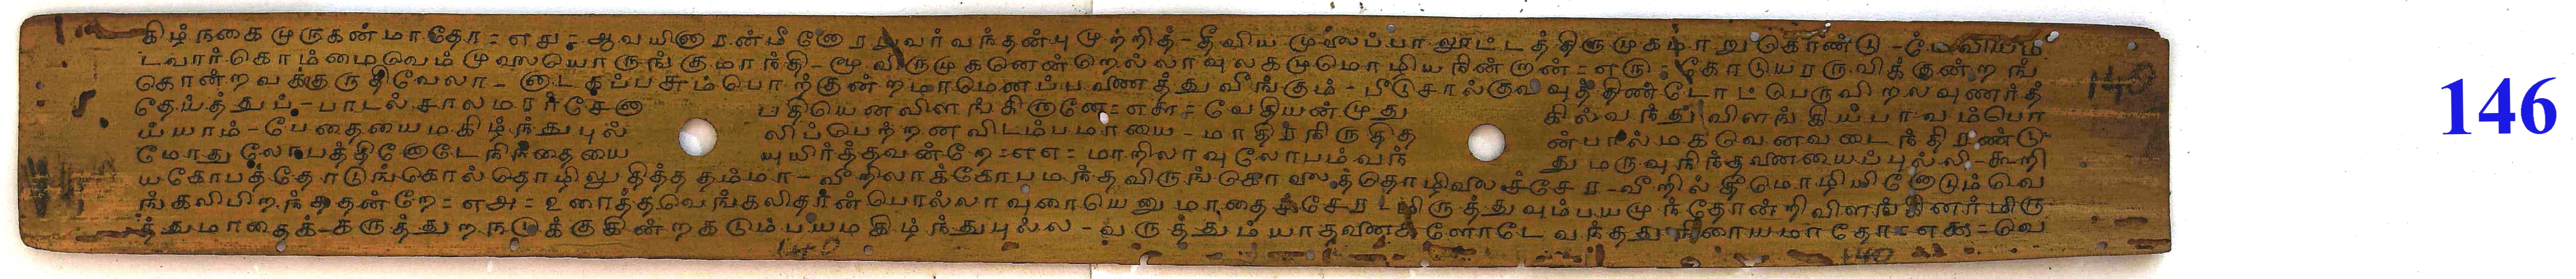 கிழ் நகை முருகன் மாதோ = எ௫ = ஆவயினரன்மீ னோ ரறுவர் வந்தன்பு முற்றித் - தீவிய முலைப்பா லூட்டத் திருமுகமாறு கொண்டு - மேவியம்
டவார் கொம்மை வெம் முலையொருங்கு மாந்தி - மூவிருமுகனென் றெல்லாவுலகமுமொழிய நின்றான் = எ௬ = கோடுயரருவிக்குன்றங்
கொன்றவக்குருதிவேலா - னாடகப்பசும் பொற்குன்றமாமெனப்பணைத்து வீங்கும் - பீடுசால்குவவுத் திண்டோட் பெருவிறலவுணர்த்
தேய்த்துப் - பாடல் சாலமரர் சேனா பதியென விளங்கினானே = எ௭ = வேதியன்முது கில்வந்து விளங்கியபாவம்பொ
ய்யாம் - பேதையை மகிழ்ந்து புல் லிப் பெற்றன விடம்பமாயை - மாதிரநிருதித ன்பால் மகவெனவடைந்திரண்டு
மோது லோபத்தினோடே நிந்தையை யுயிர்த்தவன்றே = எஎ = மாறிலாவு லோபம் வந் து மருவு நிந்தனையைப்புல்லி - கூறி
ய கோபத்தோடுங் கொல் தொழிலுதித்த தம்மா - வீறிலாக்கோபமந்த விருங்கொலைத்தொழிலைச்சேர - வீறில் தீமொழியினோடும் வெ
ங்கலி பிறந்ததன்றே = எ௮ = உரைத்த வெங்கலிதீன் பொல்லாவுரையெனு மாதைச்சேர - மிருத்துவும் பயமுந் தோன்றி விளங்கினர் மிரு
த்துமாதைக் - கருத்துற நடுக்குகின்ற கடும் பயமகிழ்ந்துபுல்ல - வருத்தும் யாதனைகளோடே வந்தது நிரையமாதோ = எ௯ = வெ
140
146